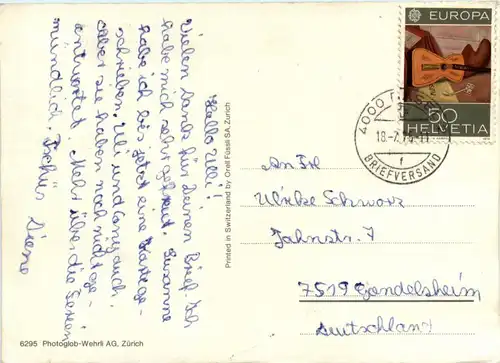 Hallo Ulli!
Vielen Dank für Deinen Brief. Ich
habe mich sehr gefreut. Susanne
habe ich bis jetzt eine Karte ge-
schrieben. Uli und Conny auch,
aber sie haben noch nicht ge-
antwortet. Mehr über die Ferien
mündlich. Tschüs
6295 Photoglob-Wehrli AG, Zürich
Printed in Switzerland by Orell Füssli SA, Zürich
EUROPA
50
HELVETIA
4000
18.-7.
BRIEFVERSAND
f
An Frl
Ulrike Schwarz
Jahnstr. 7
7519 Gondelsheim
Deutschland